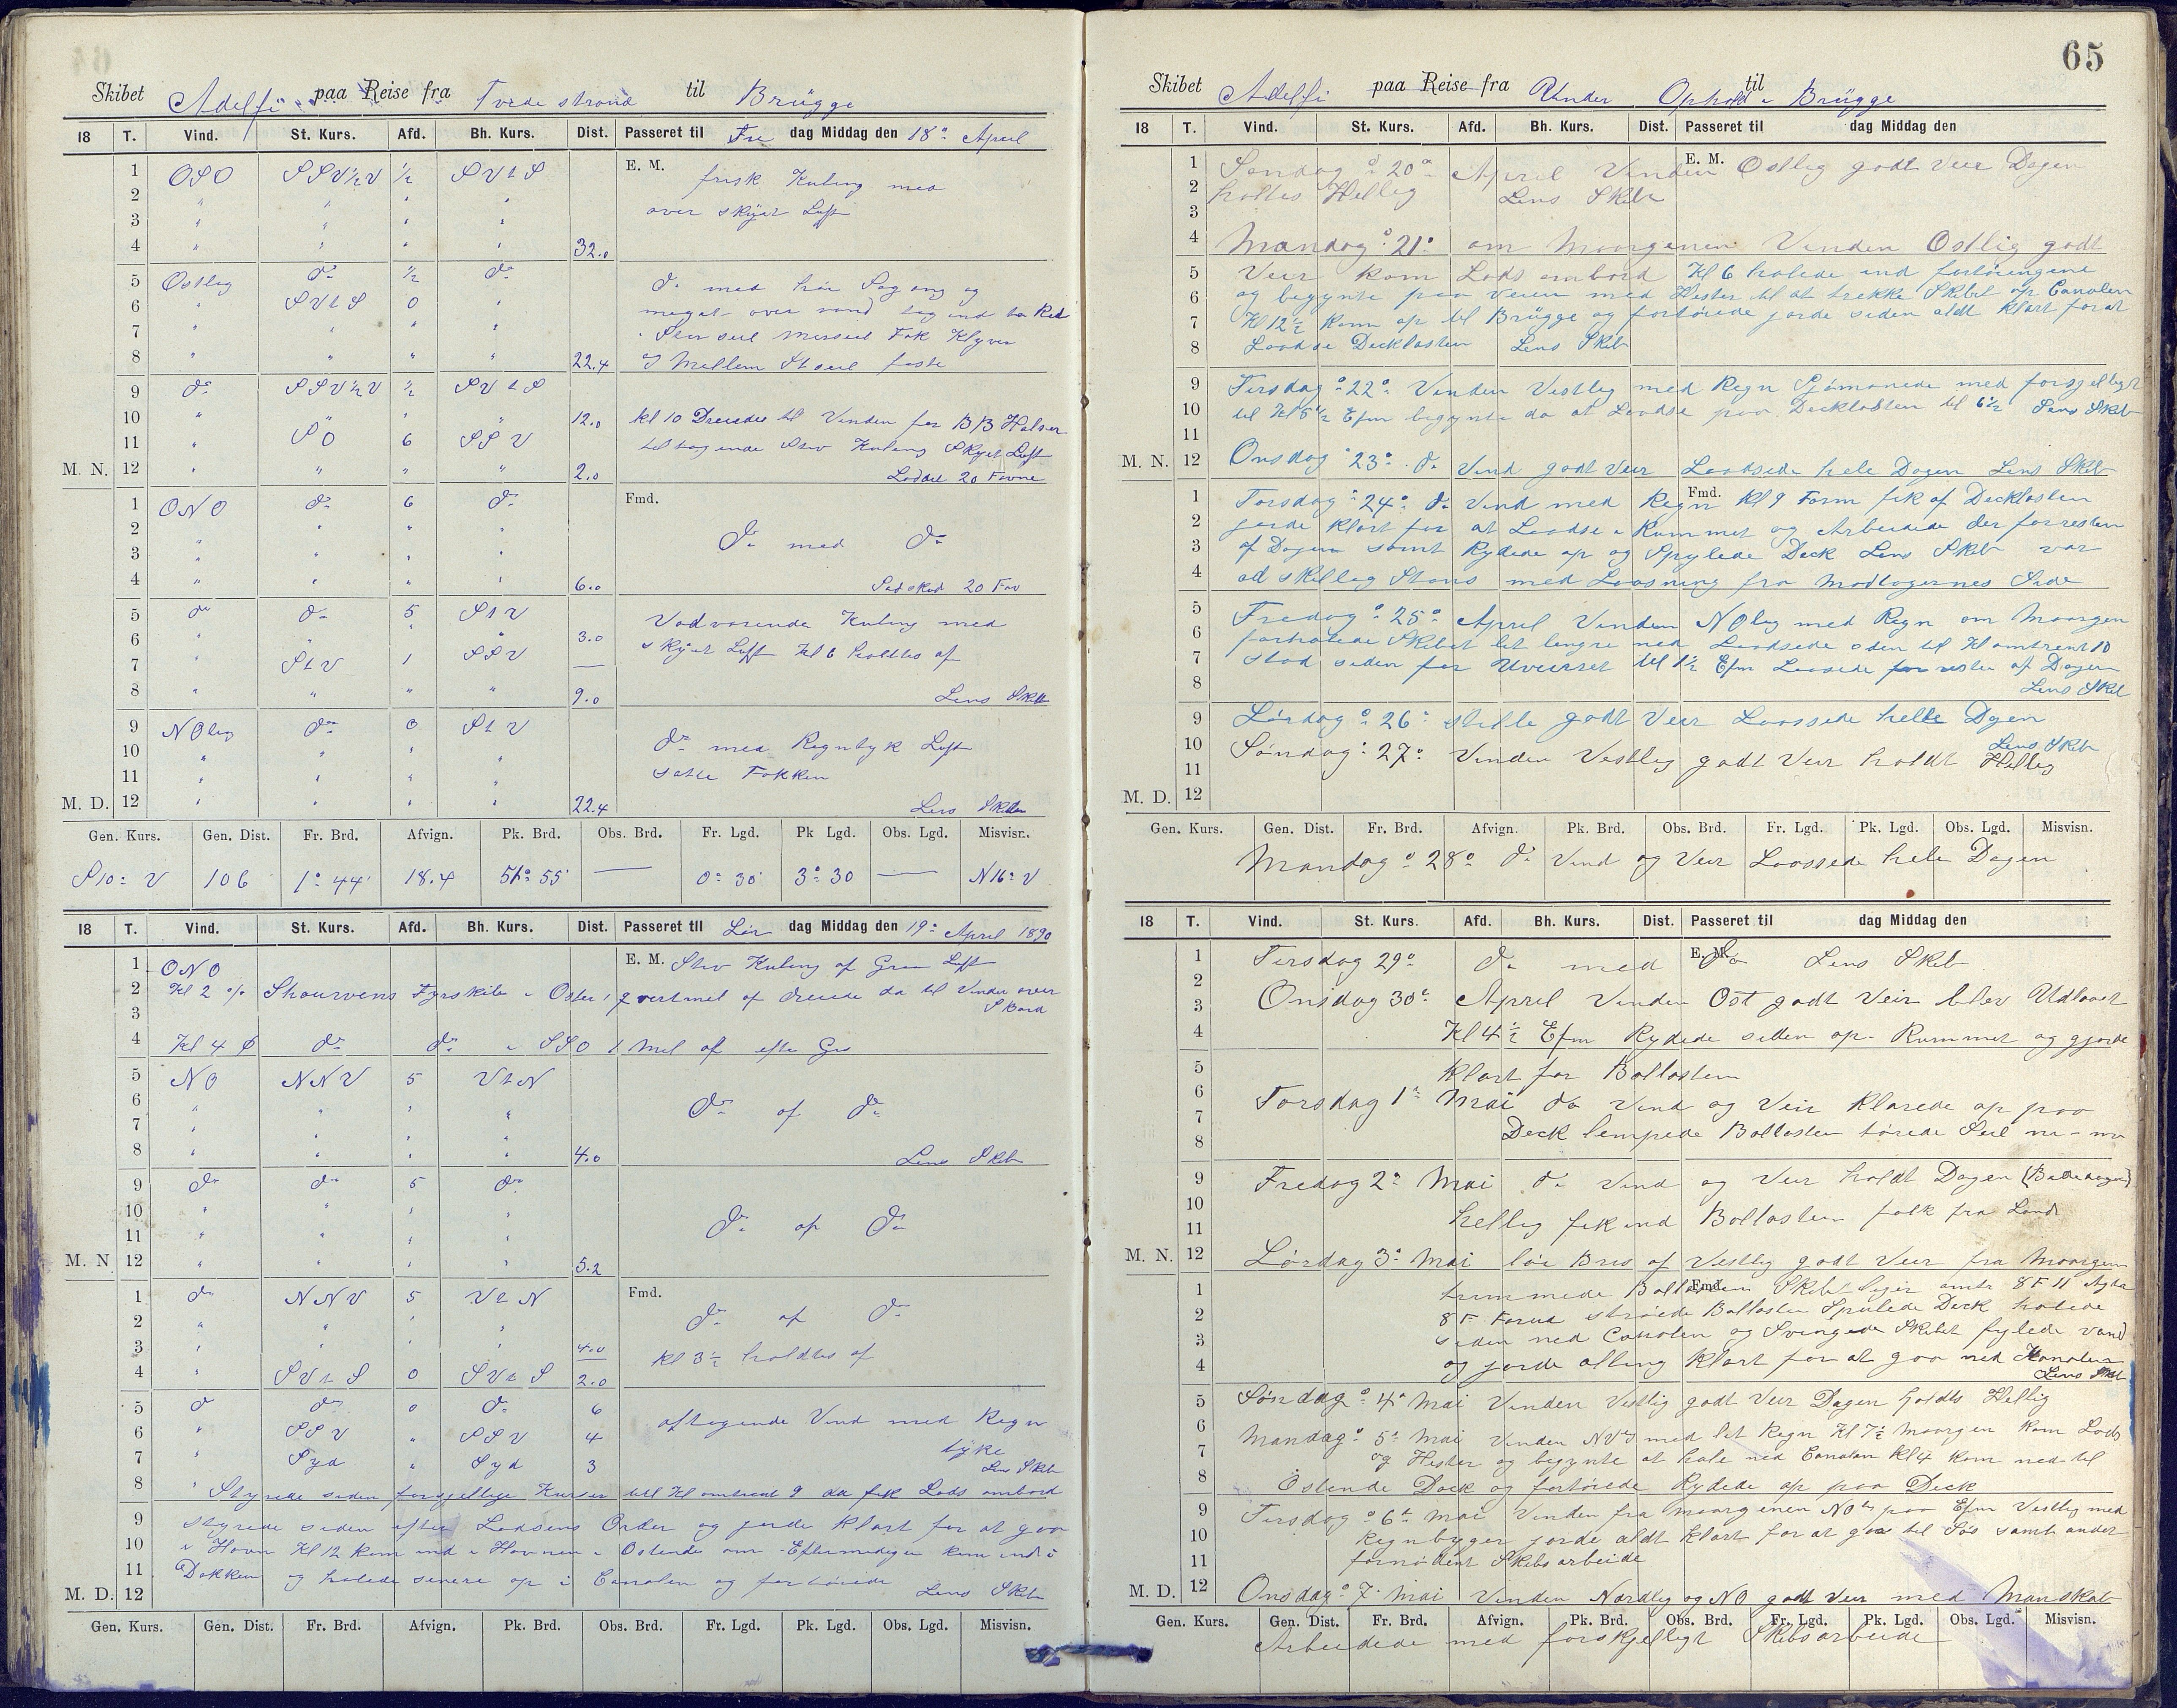 64
Skibet Adelfi paa Reise fra Tvedestrand til Brügge
18 T. Vind. St. Kurs. Afd. Bh. Kurs. Dist. Passeret til Fre dag Middag den 18de April
1 OSO SSV½V ½ SVtS E. M. frisk Kuling med
2 " " " " over skyet Luft
3 " " " "
4 " " " " 32.0
5 Ostlig do ½ do do med høi Søgang og
6 " SVtS 0 " meget over vand tog ind to Red
7 " " " " i Storseil Merseil Fok Klyver
8 " " " " 22.4 og Mellem Stseil faste
9 do SSV½V ½ SVtS
10 " " " " 12.0 kl 10 Dreiedes til Vinden for BB Halser
11 " SO 6 SSV tiltagende Stiv Kuling Skyet Luft
M. N. 12 " " " " 2.0 Loddet 20 Favne
1 ONO do 6 do Fmd.
2 " " " " do med do
3 " " " "
4 " " " " 6.0 20 Fav
5 do do 5 StV Vedvarende Kuling med
6 " " " " 3.0 skyet Luft Kl 6 holdtes af
7 " StV 1 SSV —
8 " " " " 9.0 Lens Skib
9 NOlig do 0 StV do med Regntyk Luft
10 " " " " satte Fokken
11 " " " "
M. D. 12 " " " " 22.4 Lens Skib
Gen. Kurs. Gen. Dist. Fr. Brd. Afvign. Pk. Brd. Obs. Brd. Fr. Lgd. Pk Lgd. Obs. Lgd. Misvisn.
S10°V 106 1° 44' 18.4 51° 55' — 0° 30' 3° 30 — N16°V
18 T. Vind. St. Kurs. Afd. Bh. Kurs. Dist. Passeret til Lør dag Middag den 19de April 1890
1 ONO E. M. Stiv Kuling af Graa Luft
2 Kl 2 Shouwens Fyrskib i Oster 1 qvartmil af dreiede da til Vinden over
3 S Bord
4 Kl 4 do do i SSO 1 Mil af efter Gis
5 NO NNV 5 VtN
6 " " " " do af do
7 " " " "
8 " " " " 4.0 Lens Skib
9 do do 5 do
10 " " " " do af do
11 " " " "
M. N 12 " " " " 5.2
1 do NNV 5 VtN Fmd.
2 " " " " do af do
3 " " 4.0 kl 3½ holdtes af
4 " SVtS 0 SVtS 2.0
5 do do 0 do 6 aftagende Vind med Regn
6 " SSV " SSV 4 tyke
7 " Syd " Syd 3 Lens Skib
8 " Styrede siden forsjellige Kurser till Kl omtrent 9 da fik Lods ombord
9 styrede siden efter Lodsens Order og jorde klart for at gaa
10 i Havn Kl 12 kom ind i Havnen i Ostende om Eftermidagen kom ind i
11 Dokken og halede senere op i Canalen og fortøiede
M. D. 12 Lens Skib
Gen. Kurs. Gen. Dist. Fr. Brd. Afvign. Pk. Brd. Obs. Brd. Fr. Lgd. Pk. Lgd. Obs. Lgd. Misvisn.
65
Skibet Adelfi paa Reise fra Under Ophold i til Brügge
18 T. Vind. St. Kurs. Afd. Bh. Kurs. Dist. Passeret til dag Middag den
1 Søndag d 20de April Vinden E. M. Ostlig godt Veir Dagen
2 holtes Hellig Lens Skib
3
4 Mandag d 21de om Moorgenen Vinden Ostlig godt
5 Veir kom Lods ombord Kl 6 halede ind fortøiengene
6 og begynte paa veien med Hester til at trekke Skibet op Canalen
7 Kl 12½ kom op til Brügge og fortøiede jorde siden aldt klart for at
8 Loodse Deckslasten Lens Skib
9 Tirsdag d 22de Vinden Vestlig med Regn Sjømanede med forsjelligt
10 til Kl 5½ Efm begynte da at Loodse paa Deckslasten til 6½ Lens Skib
11
M. N. 12 Onsdag 23de do Vind godt Veir Loodsede hele Dagen Lens Skib
1 Torsdag 24de do Vind med Regn Fmd. Kl 9 Form fik af Deckslasten
2 jorde klart for at Loodse i Rummet og Arbeidede der forresten
3 af Dagen samt Rydede op og Spylede Deck Lens Skib var
4 ad skillig Stans med Loosning fra Modtagernes Side
5 Fredag d 25de April Vinden NOlig med Regn om Moorgen
6 forhalede Skibet let lengre ned Loodsede siden til Kl omtrent 10
7 stod siden for Uveirset til 1½ Efm Loosede for resten af Dagen
8 Lens Skib
9 Lørdag d 26de stille godt Veir Loossede helle Dgen
10 Lens Skib
Søndag 27de Vinden Vestlig godt Veir holdt Hellig
11
M. D. 12
Gen. Kurs. Gen. Dist. Fr. Brd. Afvign. Pk. Brd. Obs. Brd. Fr. Lgd. Pk. Lgd. Obs. Lgd. Misvisn.
Mandag d 28de do Vind og Veir Loossede hele Dagen
18 T. Vind. St. Kurs. Afd. Bh. Kurs. Dist. Passeret til dag Middag den
1 Tirsdag 29de do med E. M. do Lens Skib
2
3 Onsdag 30de April Vinden Ost godt Veir blev Udlosset
4 Kl 4½ Efm Rydede siden op i Rummet og gjorde
5 klart for Ballasten
6 Torsdag 1ste Mai do Vind og Veir Klarede op paa
7
8 Deck lempede Ballasten tørede Seil m-m
9 Fredag 2de Mai do Vind og Veir holdt Dagen (Bededagen)
10
11 hellig fik ind Ballasten folk fra Land
M. N. 12 Lørdag 3de Mai løi Bris af Vestlig godt Veir fra Moorgen
1 trimmede Ballasten Fmd. Skibet ligger omtr 8 F 11 Agter
2 8 F Forud strøiede Ballasten Spulede Deck halede
3 siden ned Canalen og Svingede Skibet fylede vand
4 og jorde alting klart for at gaa ned Kanalen
Lens Skib
5 Søndag d 4de Mai Vinden Vestlig godt Veir Dagen holdts Hellig
6 Mandag d 5te Mai Vinden NVlig med let Regn Kl 7½ Moorgen kom Lods
7 og Hester og begynte at hale ned Canalen kl 4 kom ned til
8 Ostende Dock og fortøiede Rydede op paa Deck
9 Tirsdag d 6te Mai Vinden fra Moorgenen NOlig paa Efm Vestlig med
10 Regnbyger jorde aldt klart for at gaa til Søs samt andet
11 fornødent Skibsarbeide
M. D. 12 Onsdag d 7 Mai Vinden Nordlig og NO godt Veir med Manskab
Gen. Kurs. Gen. Dist. Fr. Brd. Afvign. Pk. Brd. Obs. Brd. Fr. Lgd. Pk. Lgd. Obs. Lgd. Misvisn.
Arbeidede med forskjelligt Skibsarbeide